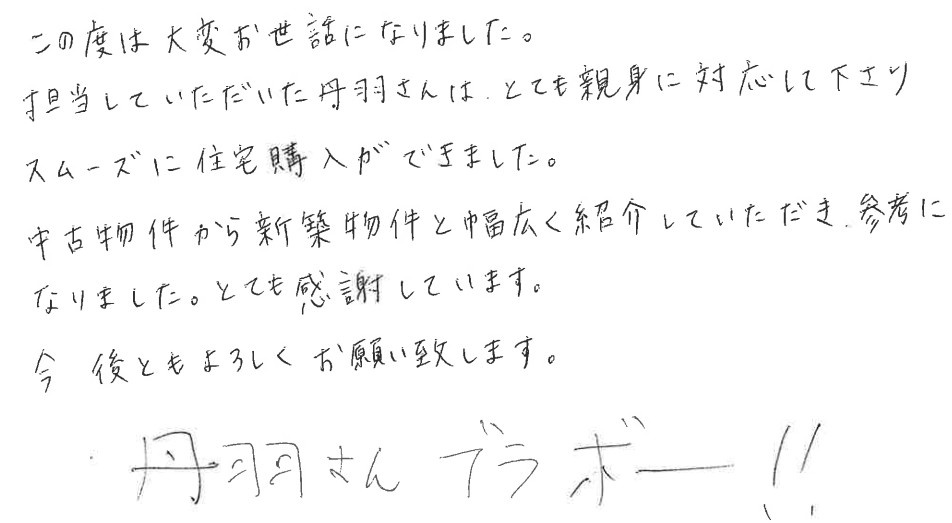 この度は大変お世話になりました。
担当していただいた丹羽さんは、とても親身に対応して下さり
スムーズに住宅購入ができました。
中古物件から新築物件と幅広く紹介していただき、参考に
なりました。とても感謝しています。
今後ともよろしくお願い致します。
丹羽さん ブラボー!!